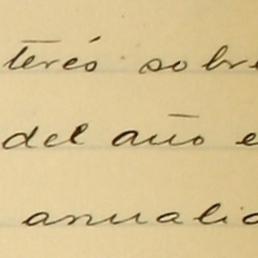 terés sobre
del año e
anualid